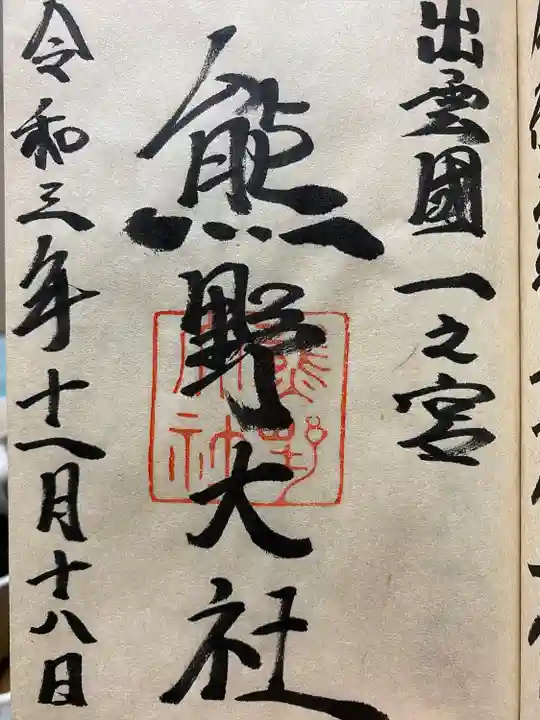 出雲國一之宮
熊野大社
熊野
大社
令和三年十一月十八日